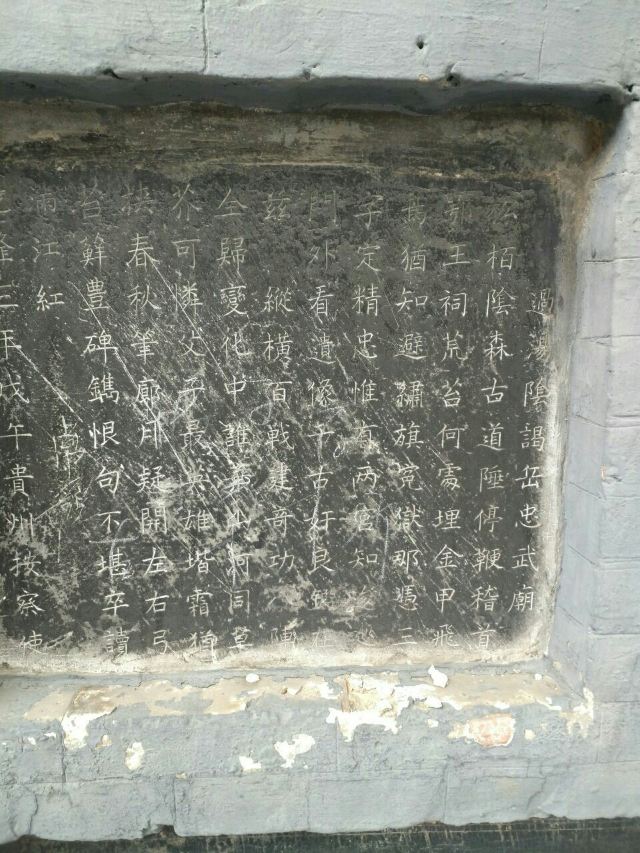 過湯陰謁岳忠武廟
松栢陰森古道陲停鞭稽首
鄂王祠荒苔何處埋金甲飛
鳥猶知避繡旗冤獄那憑三
字定精忠惟有兩宮知
門外看遺像千古奸良報在
茲 縱橫百戰建奇功八陣
全歸變化中誰為山河同草
芥可憐父子最英雄堦霜猶
挾春秋筆廊月疑開左右弓
苔蘚豊碑鐫恨句不堪卒讀
滿江紅
隆三年戊午貴州按察使